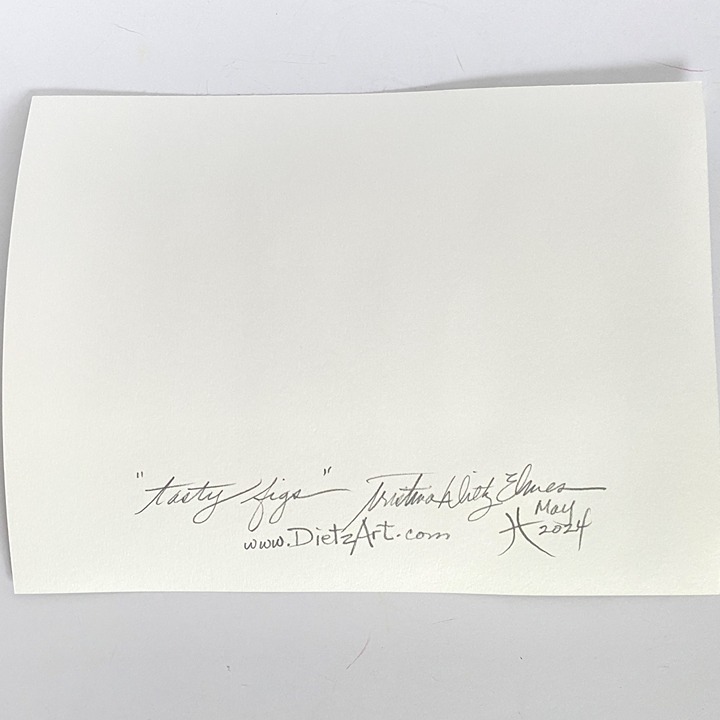 "tasty figs" Tristina Dietz Elmes
www.DietzArt.com
May
2024